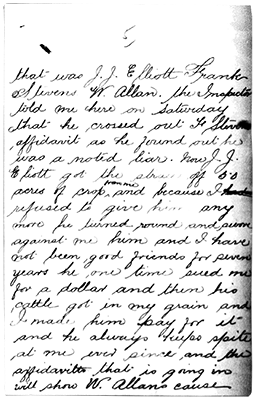 5
that was J. J. Elliott Frank
Stevens W. Allan. the Inspector
told me here on Saturday
that he crossed out F Stevens
affidavit as he found out he
was a noted liar. Now J. J.
Elliott got the straw of 60
acres of crop from me and because I
refused to give him any
more he turned round and swore
against me him and I have
not been good friends for seven
years he one time sued me
for a dollar and then his
cattle got in my grain and
I made him pay for it
and he always keeps spite
at me ever since and the
affidavits that is going in
will show W. Allans cause